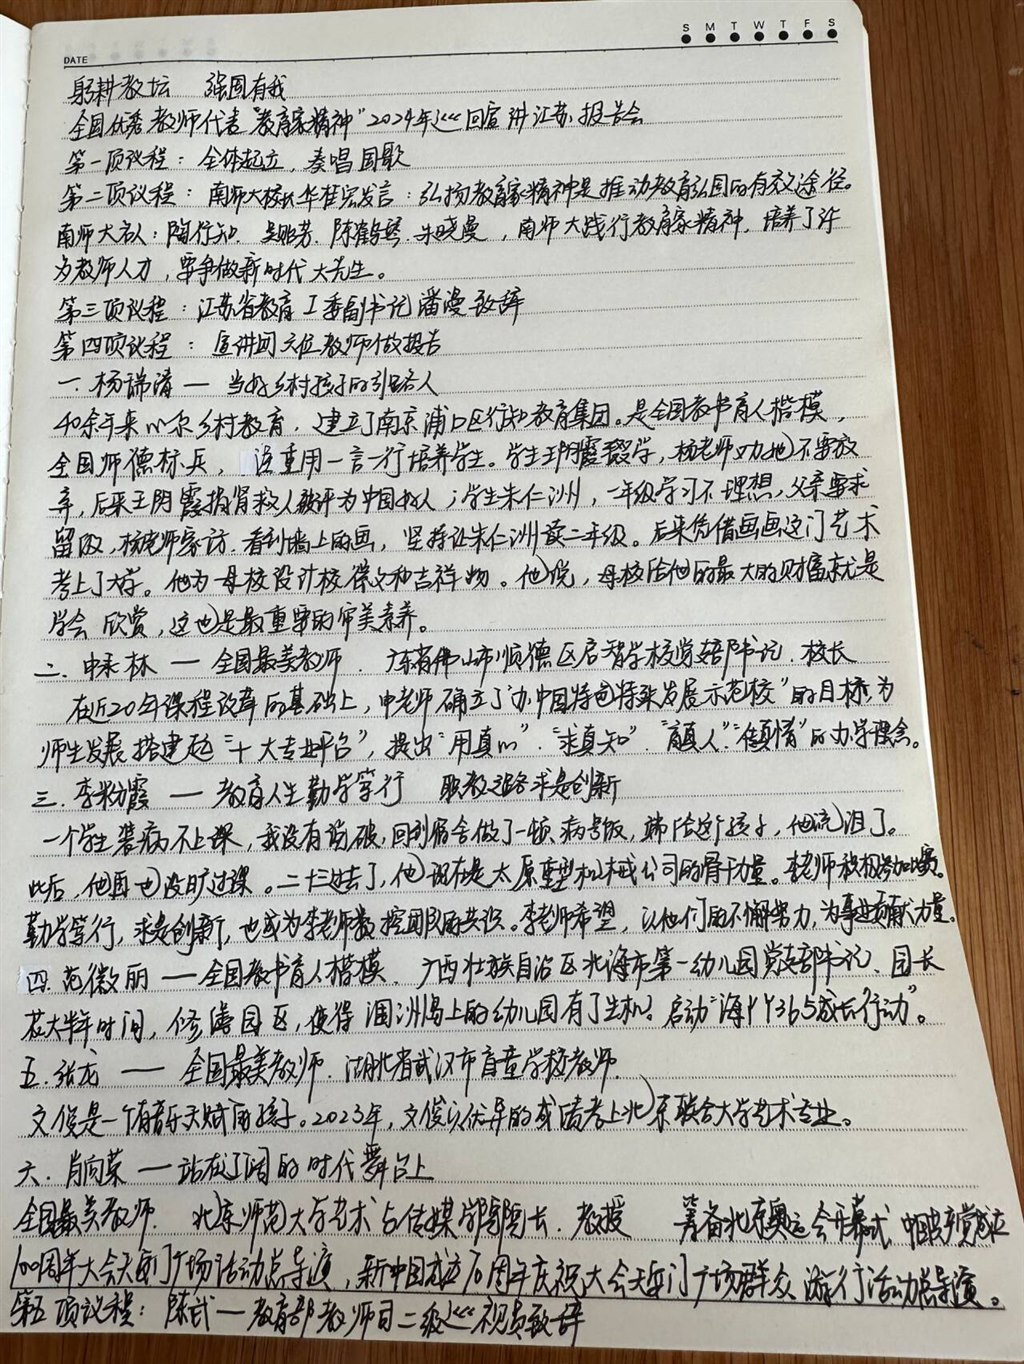 S M T W T F S
DATE
躬耕教坛 强国有我
全国优秀教师代表"教育家精神"2024年巡回宣讲江苏报告会
第一项议程：全体起立，奏唱国歌
第二项议程：南师大校长华桂宏发言：弘扬教育家精神是推动教育强国的有效途径。
南师大名人：陶行知、吴贻芳、陈鹤琴、朱晓曼，南师大践行教育家精神，培养了许
多教师人才，要争做新时代大先生。
第三项议程：江苏省教育工委副书记潘漫致辞
第四项议程：宣讲团六位教师做报告
一.杨瑞清——当好乡村孩子的引路人
40余年来 乡村教育，建立了南京浦口区行知教育集团。是全国教书育人楷模，
全国师德标兵，注重用一言一行培养学生。学生王明霞辍学，杨老师劝她不要放
弃，后来王明霞捐肾救人被评为中国好人；学生朱仁洲，一年级学习不理想，父亲要求
留级，杨老师家访，看到墙上的画，坚持让朱仁洲读二年级。后来凭借画画这门艺术
考上了大学。他为母校设计校徽和吉祥物。他说，母校给他的最大的财富就是
学会欣赏，这也是最重要的审美素养。
二.申承林——全国最美教师、广东省佛山市顺德区启智学校党支部书记、校长
在近20年课程改革的基础上，申老师确立了"办中国特色特殊发展示范校"的目标，为
师生发展搭建起"十大专业平台"，提出"用真心"、"求真知"、"育真人"、"倾真情"的办学理念。
三.李粉霞——教育人生勤学笃行 职教之路求是创新
一个学生装病不上课，我没有说破，回到宿舍做了一顿病号饭，端给这个孩子，他流泪了。
此后，他再也没旷过课。二十三过去了，他现在是太原重型机械公司的骨干力量。李老师积极参加比赛。
勤学笃行，求是创新，也成为李老师数控团队的共识。李老师希望，以他们的不懈努力，为事业贡献力量。
四.范徽丽——全国教书育人楷模、广西壮族自治区北海市第一幼儿园党支部书记、园长
花大半年时间，修缮园区，使得涠洲岛上的幼儿园有了生机。启动"海丫丫365成长行动"。
五.张龙——全国最美教师、湖北省武汉市盲童学校教师
文俊是一个有音乐天赋的孩子。2023年，文俊以优异的成绩考上北京联合大学艺术专业。
六.肖向荣——站在广阔的时代舞台上
全国最美教师、北京师范大学艺术与传媒学院院长、教授 筹备北京奥运会开幕式 中国共产党成立
100周年大会天安门广场活动总导演，新中国成立70周年庆祝大会天安门广场群众游行活动总导演。
第五项议程：陈武——教育部教师司二级巡视员致辞